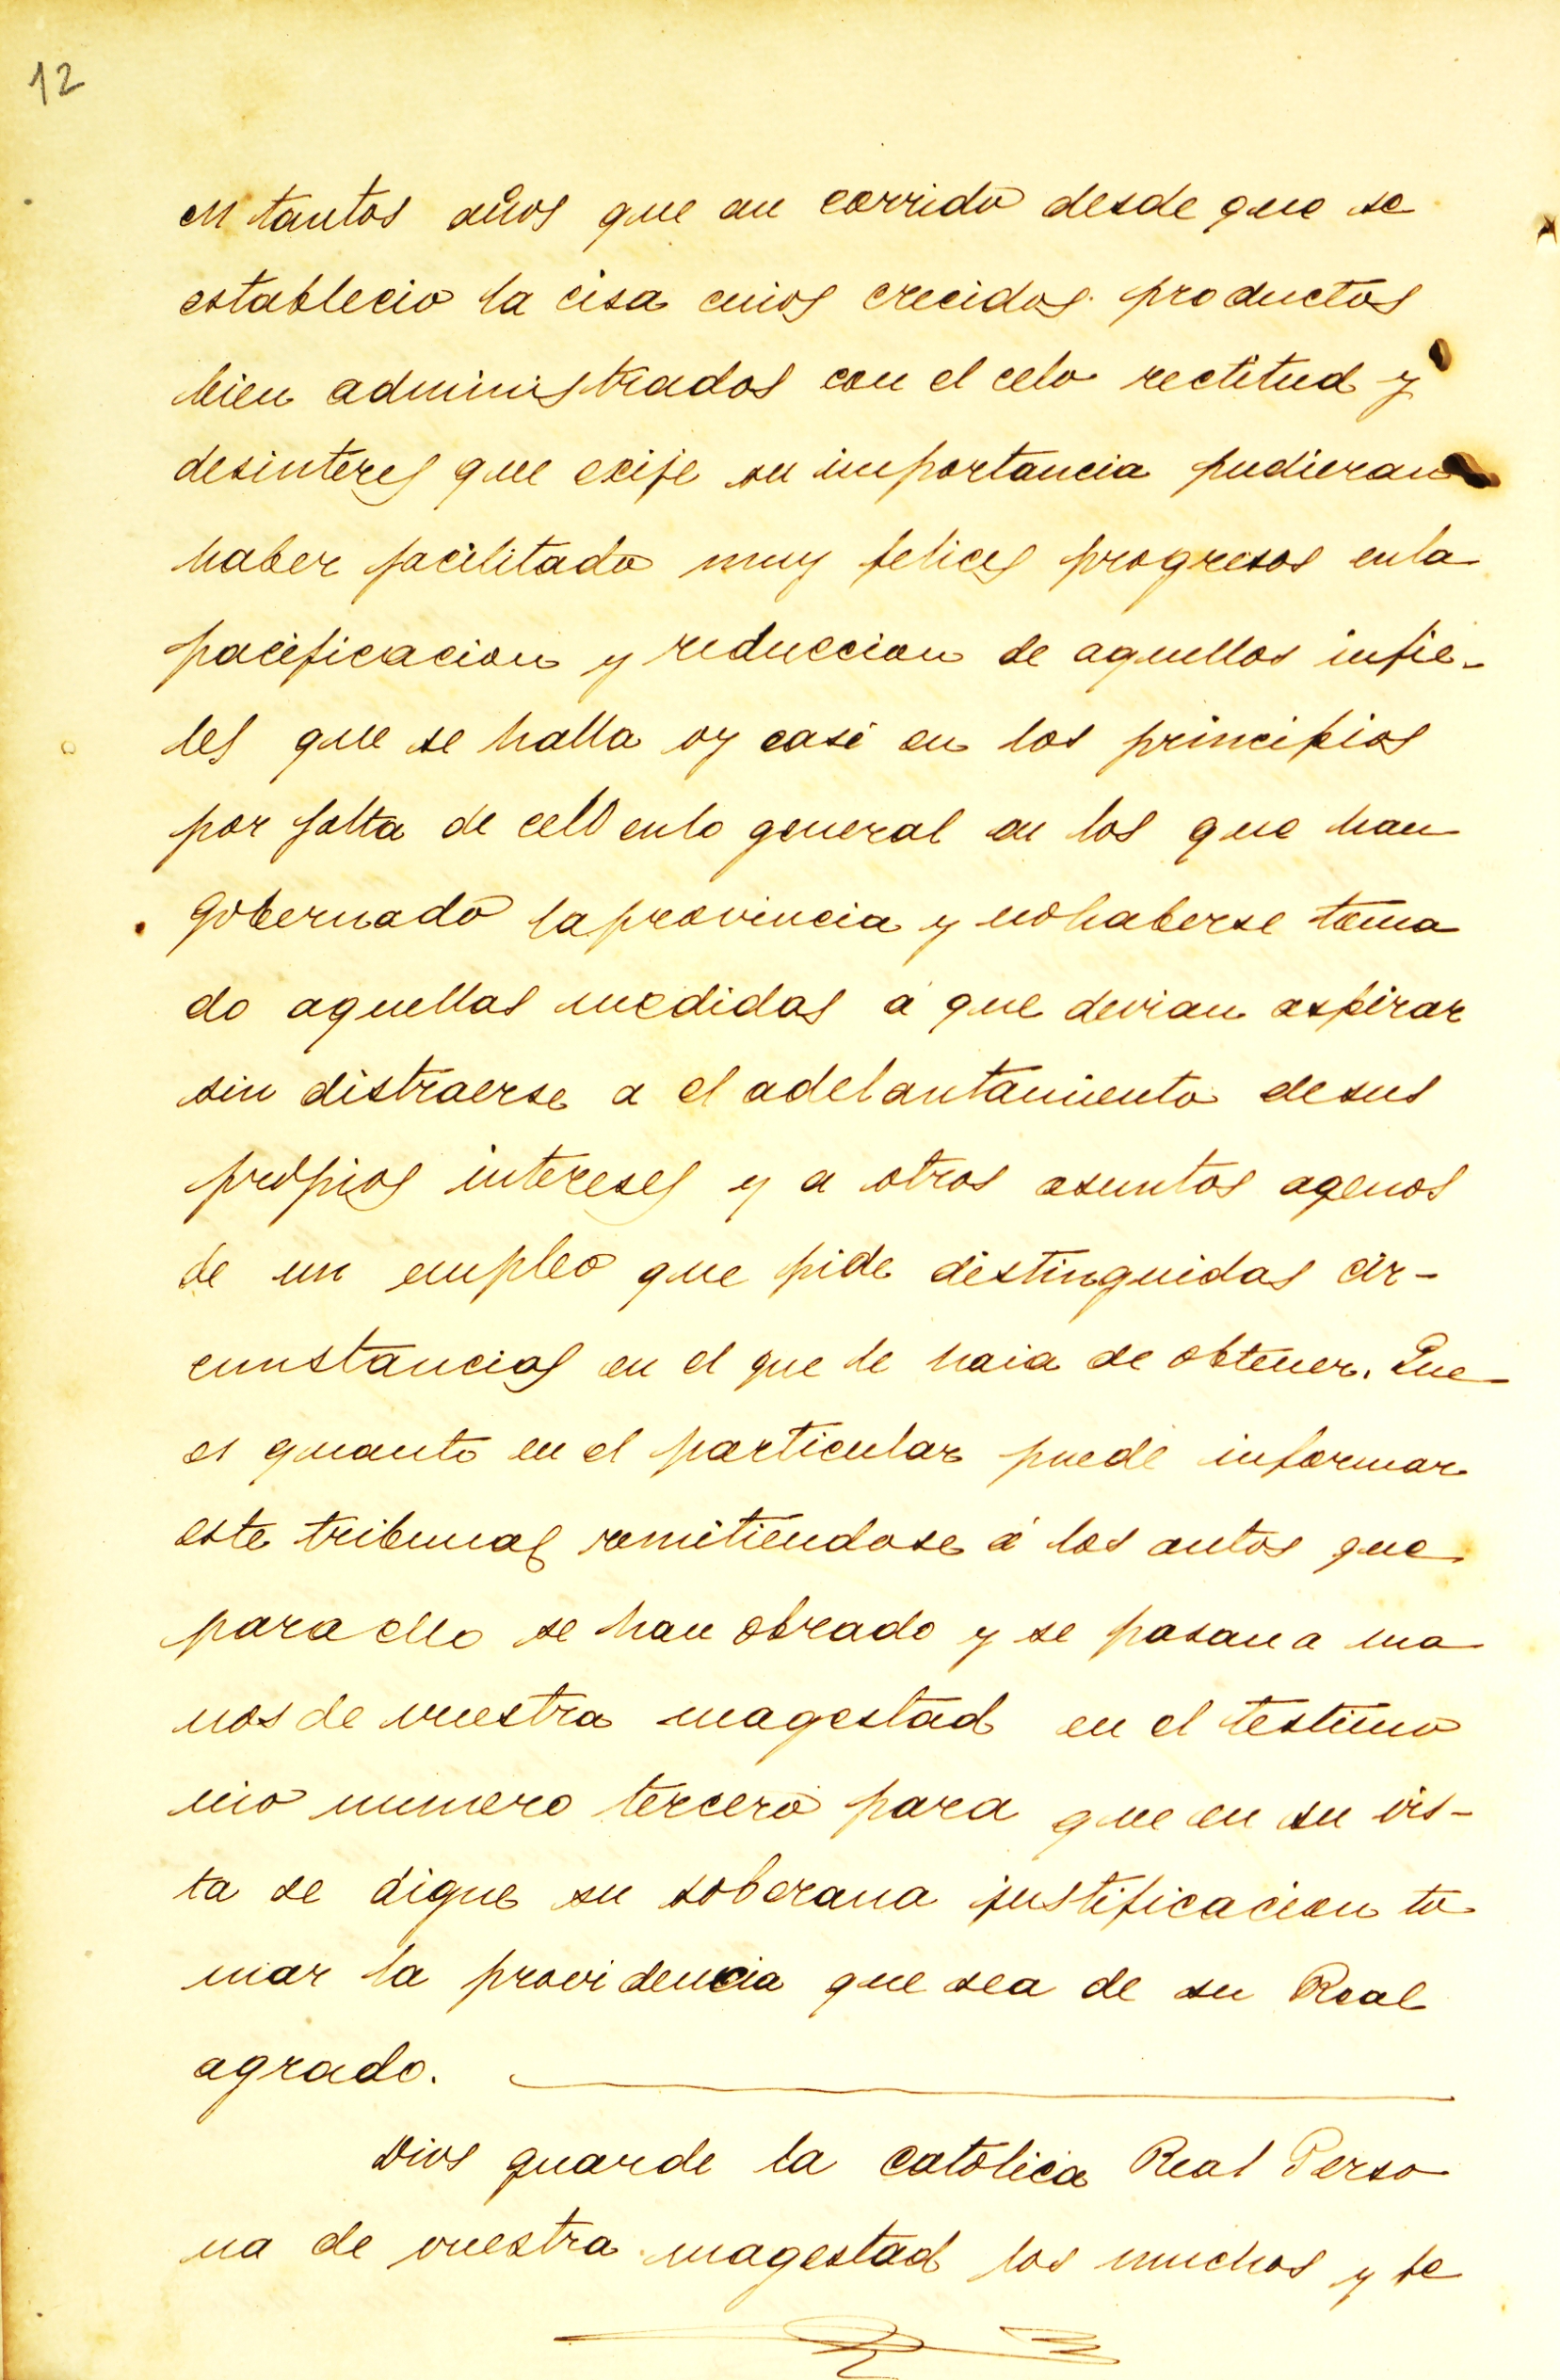 12
en tantos años que an corrido desde que se
establecio la cisa cuios crecidos productos
bien administrados con el celo rectitud y
desinteres que exije su importancia pudieran
haber facilitado muy felices progresos enla
pacificacion y reduccion de aquellos infie-
les que se halla oy casi en los principios
por falta de celo enlo general en los que han
gobernado laprovincia y nohaberse toma
do aquellas medidas a que devian aspirar
sin distraerse a el adelantamiento desus
propios intereses y a otros asuntos agenos
de un empleo que pide distinguidas cir-
cunstancias en el que le haia de obtener. Que
es quanto en el particular puede informar
este tribunal remitiendose á los autos que
para ello se han obrado y se pasan a ma
nos de vuestra magestad en el testimo
nio numero tercero para que en su vis-
ta se digne su soberana justificacion to
mar la providencia que sea de su Real
agrado.
Dios guarde la catolica Real Perso
na de vuestra magestad los muchos y fe